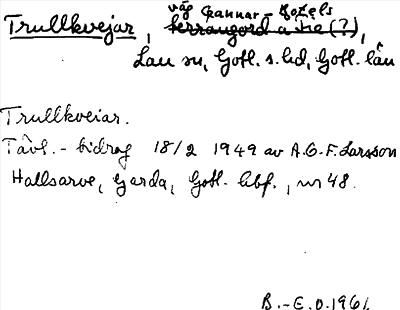 väg Gannar - Botels
Trullkvejar, terrängord a sie (?),
Lau sn, Gotl. s. hd, Gotl. län
Trullkveiar.
Tävl. - bidrag 18/2 1949 av A.G.F. Larsson
Hallsarve, Garda, Gotl. bbf., nr 48.
B.-E.O. 1961.